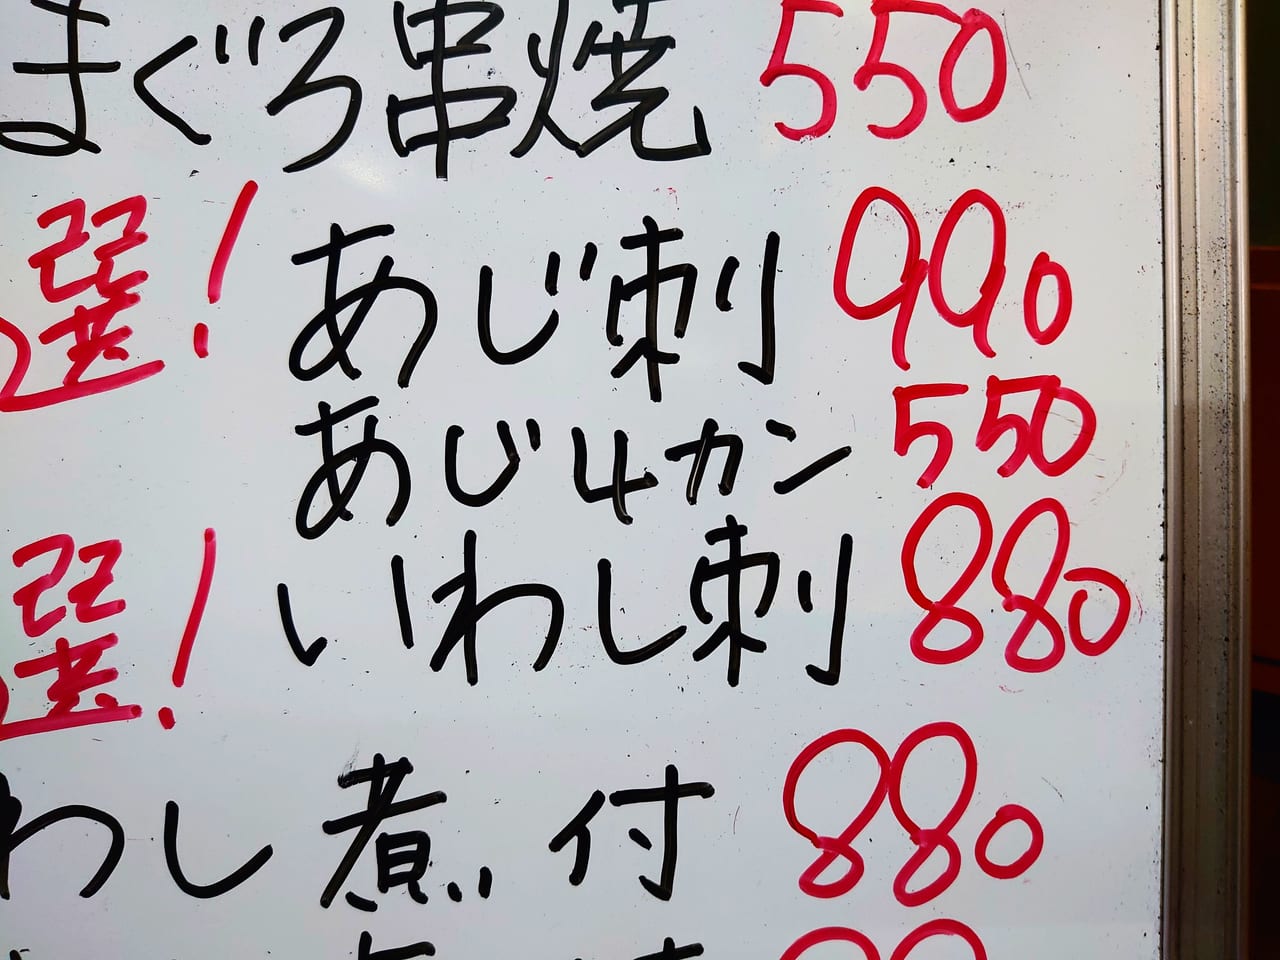 まぐろ串焼 550
選! あじ刺 990
あじ4カン 550
選! いわし刺 880
わし煮付 880